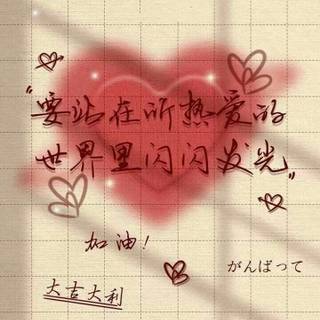 “要站在所热爱的
世界里闪闪发光”
加油!
がんばって
大吉大利